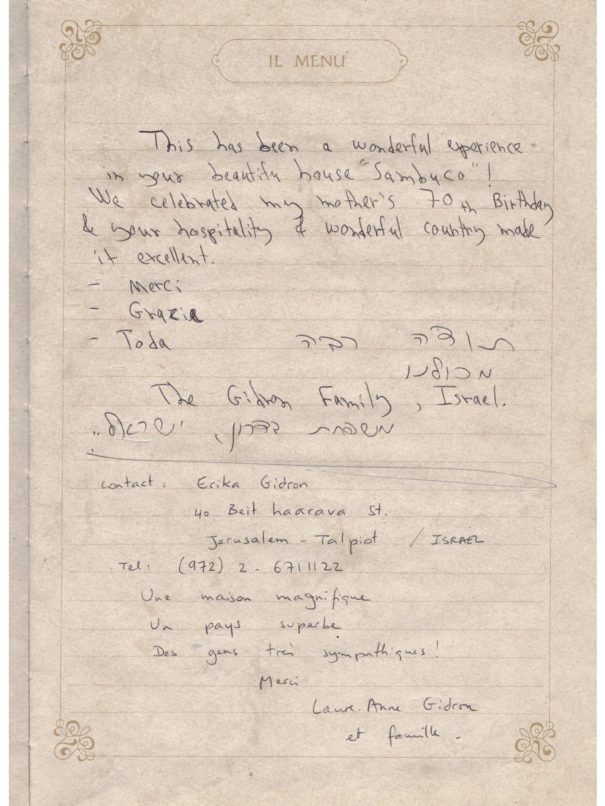 IL MENÚ
This has been a wonderful experience
in your beautifu house "Sambuco"!
We celebrated my mother's 70th Birthday
& your hospitality & wonderful country made
it excellent.
- Merci
- Grazie
- Toda תודה רבה
מכולנו
The Gidron Family, Israel.
משפחת גדרון, ישראל.
contact: Erika Gidron
40 Beit haarava st.
Jerusalem - Talpiot / ISRAEL
Tel: (972) 2 - 6711122
Une maison magnifique
Un pays superbe
Des gens très sympathiques!
Merci
Laure-Anne Gidron
et famille.